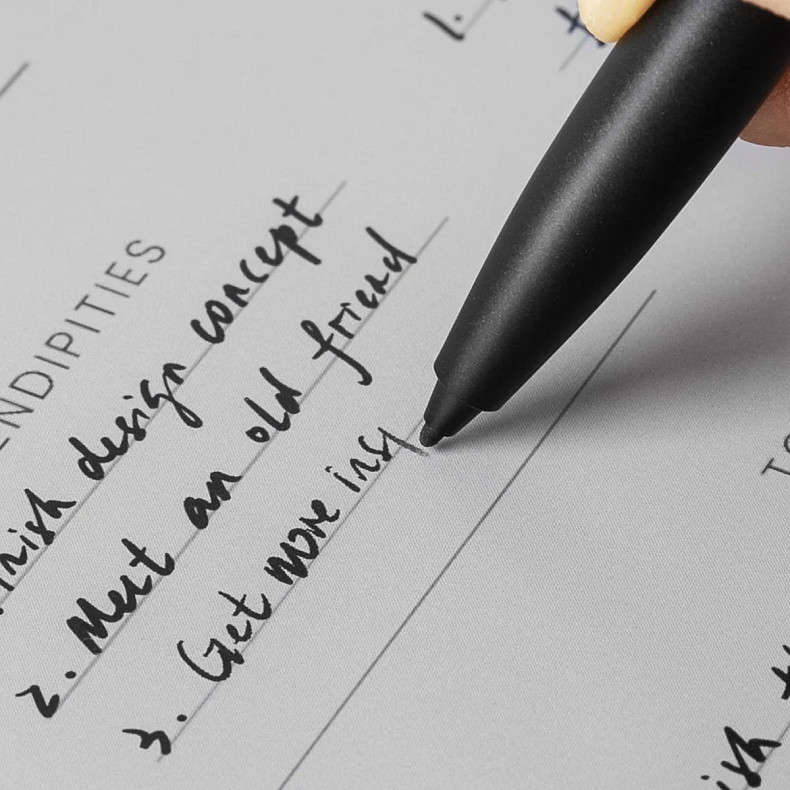 1.
ENDIPITIES
inish design concept
2. Meet an old friend
3. Get more ins
TO
ish